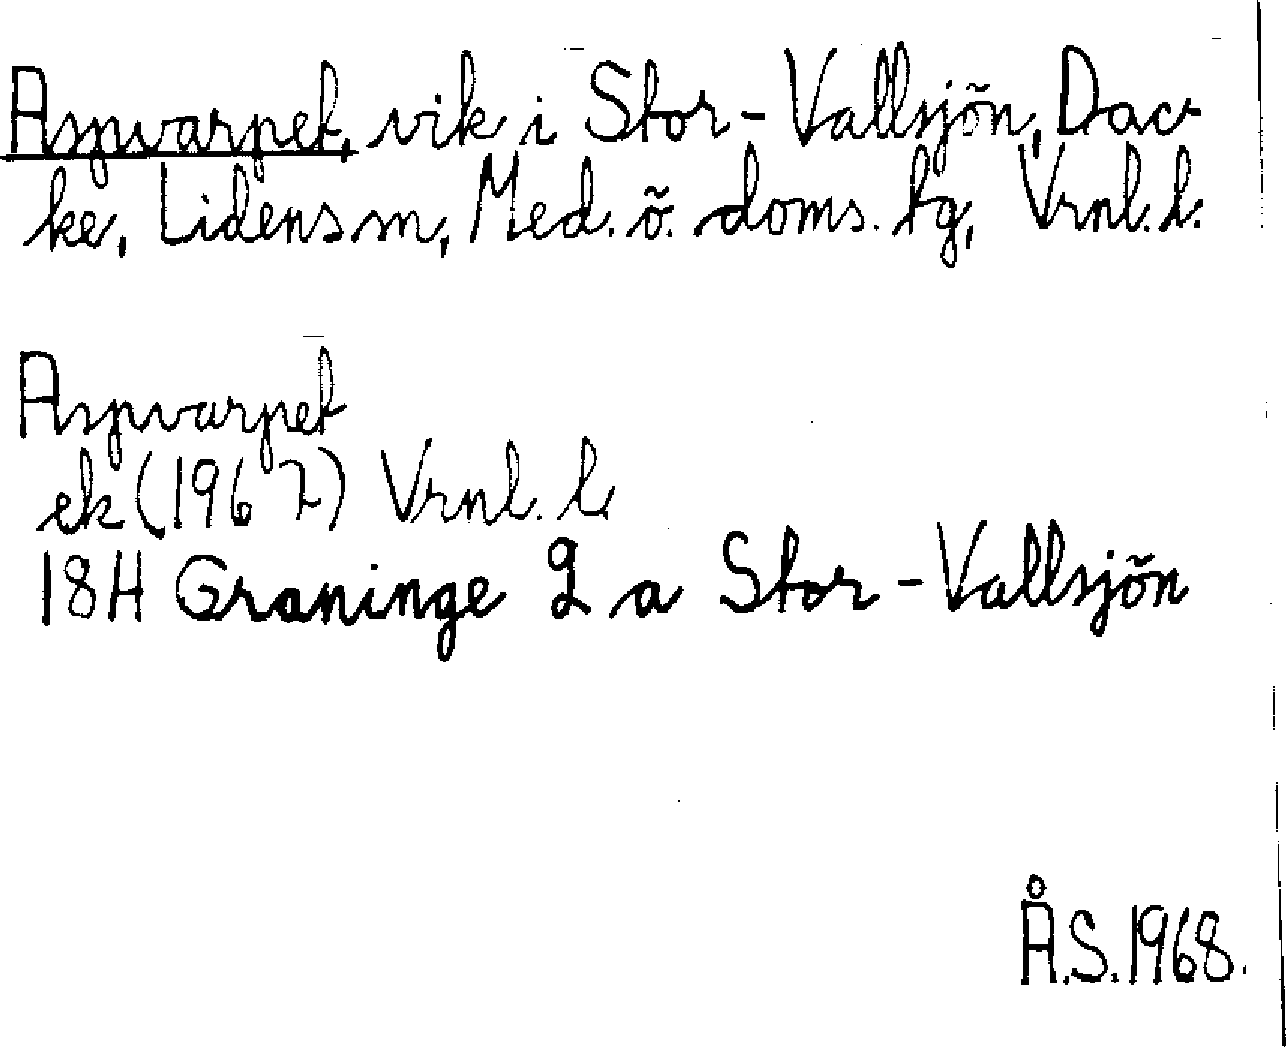 Aspvarpet, vik i Stor-Vallsjön, Dac-
ke, Lidens sn, Med. ö. doms. tg, Vrnl. l.
Aspvarpet
ek (1967) Vrnl. l.
18H Graninge 2 a Stor-Vallsjön
Å.S. 1968.